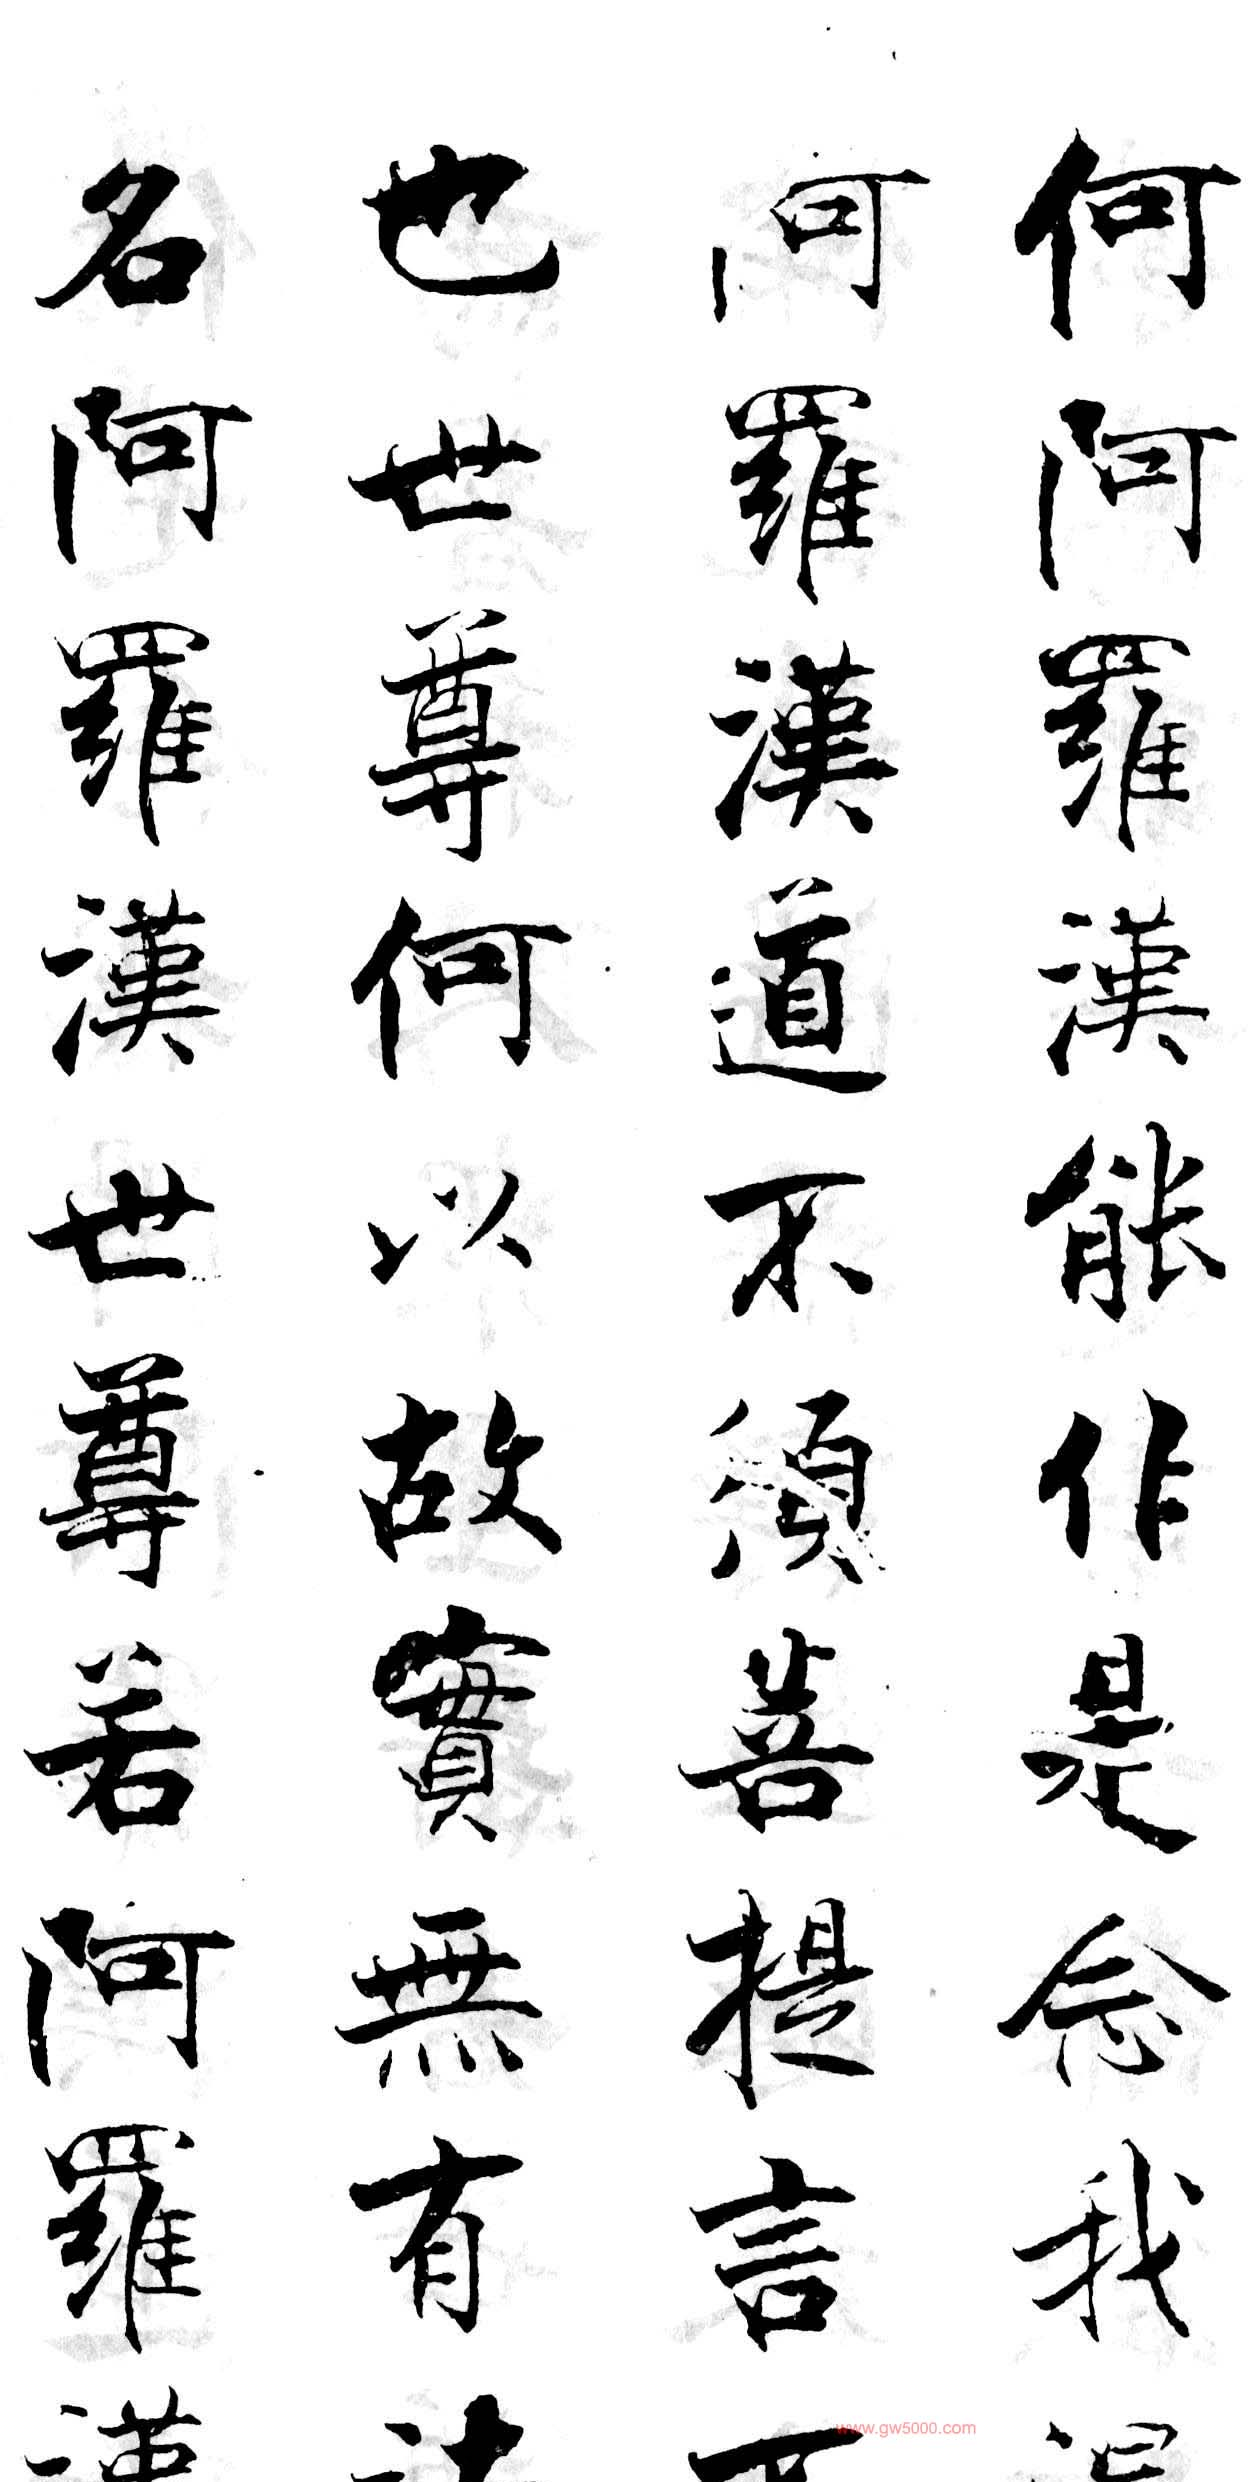 何阿羅漢能作是念我得
阿羅漢道不須菩提言不
也世尊何以故實無有法
名阿羅漢世尊若阿羅漢
www.gw5000.com